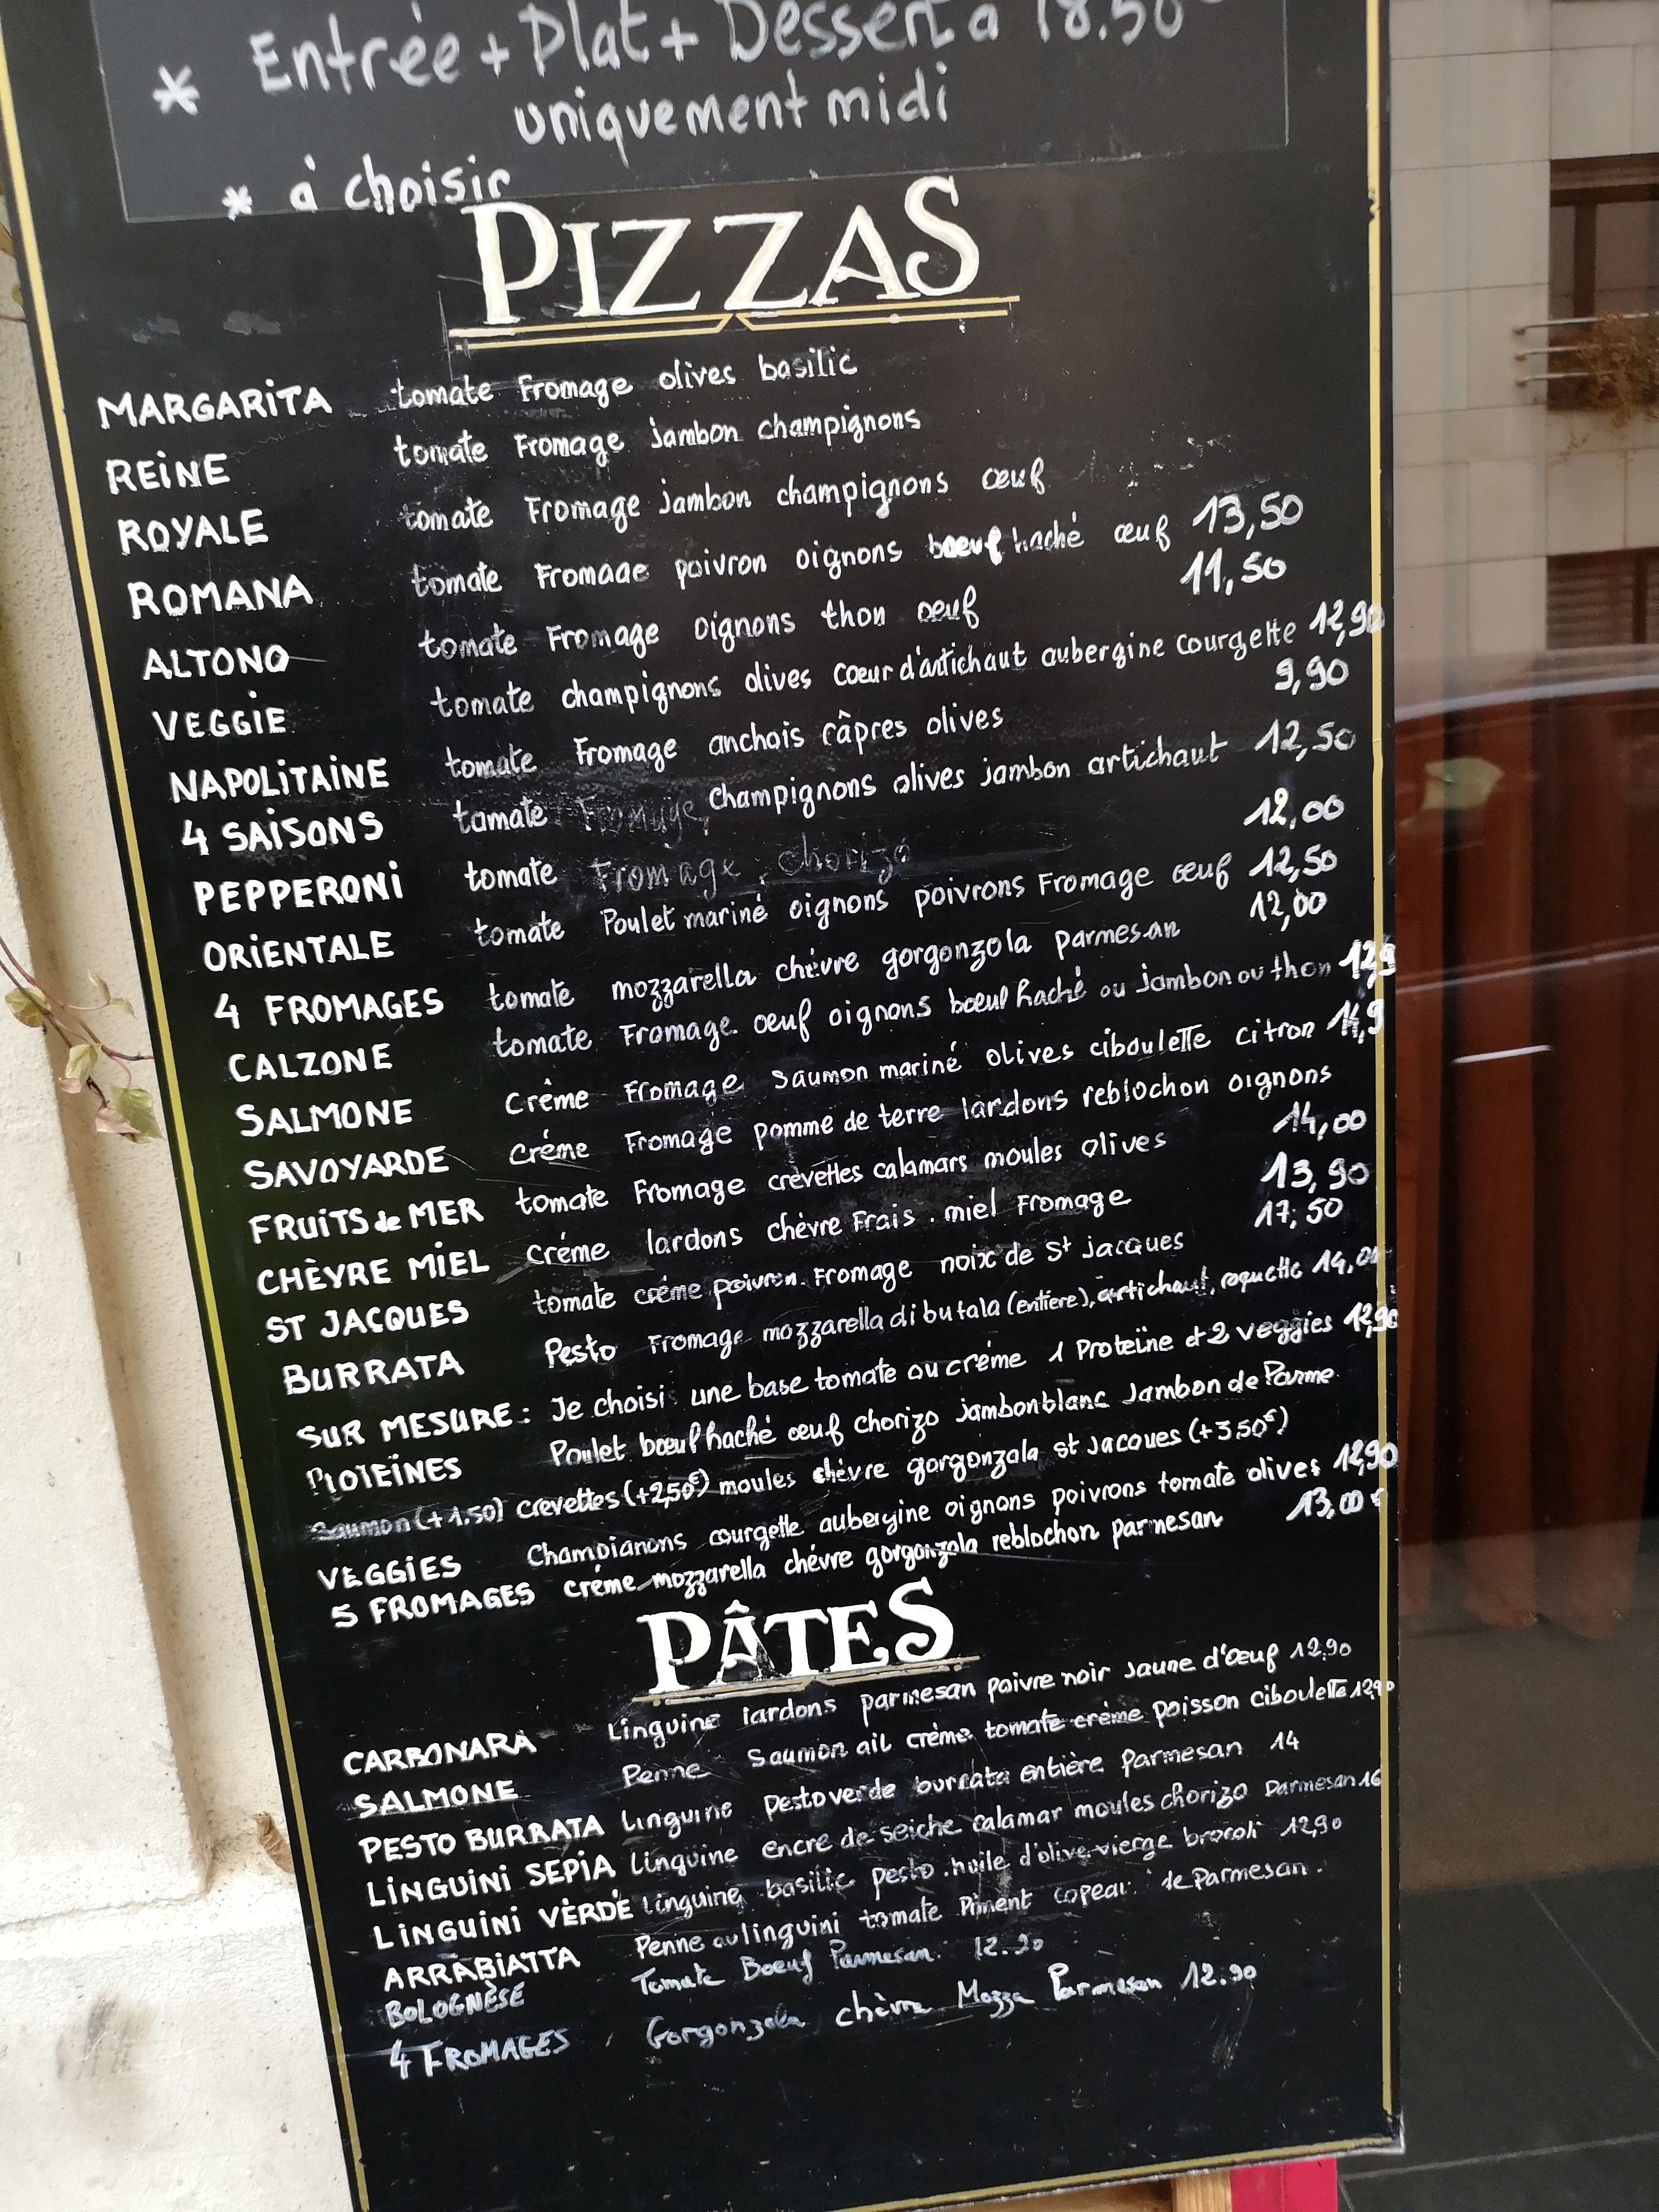 * Entrée + Plat + Dessert à 18.50
uniquement midi
* à choisir
PIZZAS
MARGARITA tomate Fromage olives basilic
REINE tomate Fromage jambon champignons
ROYALE tomate Fromage jambon champignons œuf
ROMANA tomate Fromage poivron oignons bœuf haché œuf 13,50
ALTONO tomate Fromage oignons thon œuf 11,50
VEGGIE tomate champignons olives coeur d'artichaut aubergine courgette 12,90
NAPOLITAINE tomate Fromage anchois câpres olives 9,90
4 SAISONS tomate Fromage, champignons olives jambon artichaut 12,50
PEPPERONI tomate Fromage, chorizo 12,00
ORIENTALE tomate Poulet mariné oignons poivrons Fromage œuf 12,50
4 FROMAGES tomate mozzarella chèvre gorgonzola parmesan 12,00
CALZONE tomate Fromage œuf oignons bœuf haché ou jambon ou thon 12,9
SALMONE Crème Fromage saumon mariné olives ciboulette citron 14,9
SAVOYARDE créme Fromage pomme de terre lardons reblochon oignons
FRUITS de MER tomate Fromage crevettes calamars moules olives 14,00
CHÈVRE MIEL créme lardons chèvre Frais. miel Fromage 13,90
ST JACQUES tomate créme poivron. Fromage noix de St Jacques 17,50
BURRATA Pesto Fromage mozzarella di bufala (entiere), artichaut, roquette 14,00
SUR MESURE: Je choisi une base tomate ou créme 1 Proteïne et 2 veggies 12,90
PROTEÏNES Poulet bœuf haché œuf chorizo jambon blanc Jambon de Parme
Saumon (+1.50) crevettes (+2,50€) moules chèvre gorgonzala st Jacques (+3,50€)
VEGGIES Champignons courgette aubergine oignons poivrons tomate olives 12,90
5 FROMAGES créme mozzarella chévre gorgonzola reblochon parmesan 13,00€
PÂTES
CARBONARA Linguine lardons parmesan poivre noir Jaune d'œuf 12,90
SALMONE Penne Saumon ail crème tomate crème poisson ciboulette 12,90
PESTO BURRATA Linguine pesto verde burrata entière parmesan 14
LINGUINI SEPIA Linguine encre de seiche calamar moules chorizo parmesan 16
LINGUINI VERDÉ Linguine basilic pesto. huile d'olive vierge brocoli 12,90
ARRABIATTA Penne ou linguini tomate Piment copeau de Parmesan.
BOLOGNÈSE Tomate Boeuf Parmesan. 12.90
4 FROMAGES Gorgonzola chèvre Mozza Parmesan 12.90